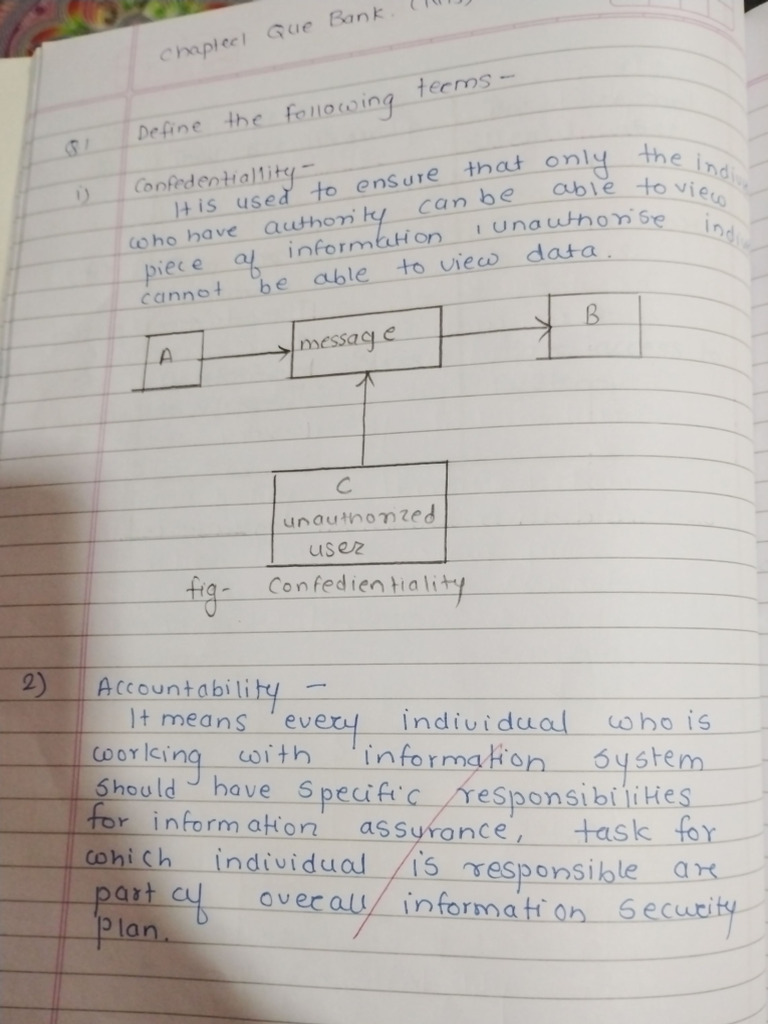 Chapter1 Que Bank.
Q1 Define the following terms -
i) Confedentiallity -
It is used to ensure that only the
who have authority can be able to view
piece of information , unauthorise
cannot be able to view data.
A
message
B
C
unauthorized
user
fig- Confedientiality
2) Accountability -
It means every individual who is
working with information system
should have specific responsibilities
for information assurance, task for
which individual is responsible are
part of overall information security
plan.